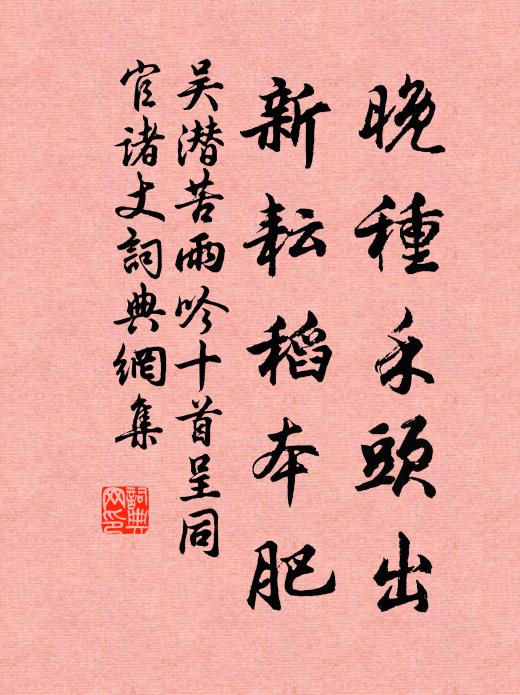 晚種禾頭出
新耘稻本肥
吴潛苦雨吟十首呈同
官诸丈詞典網集
詞典
网印